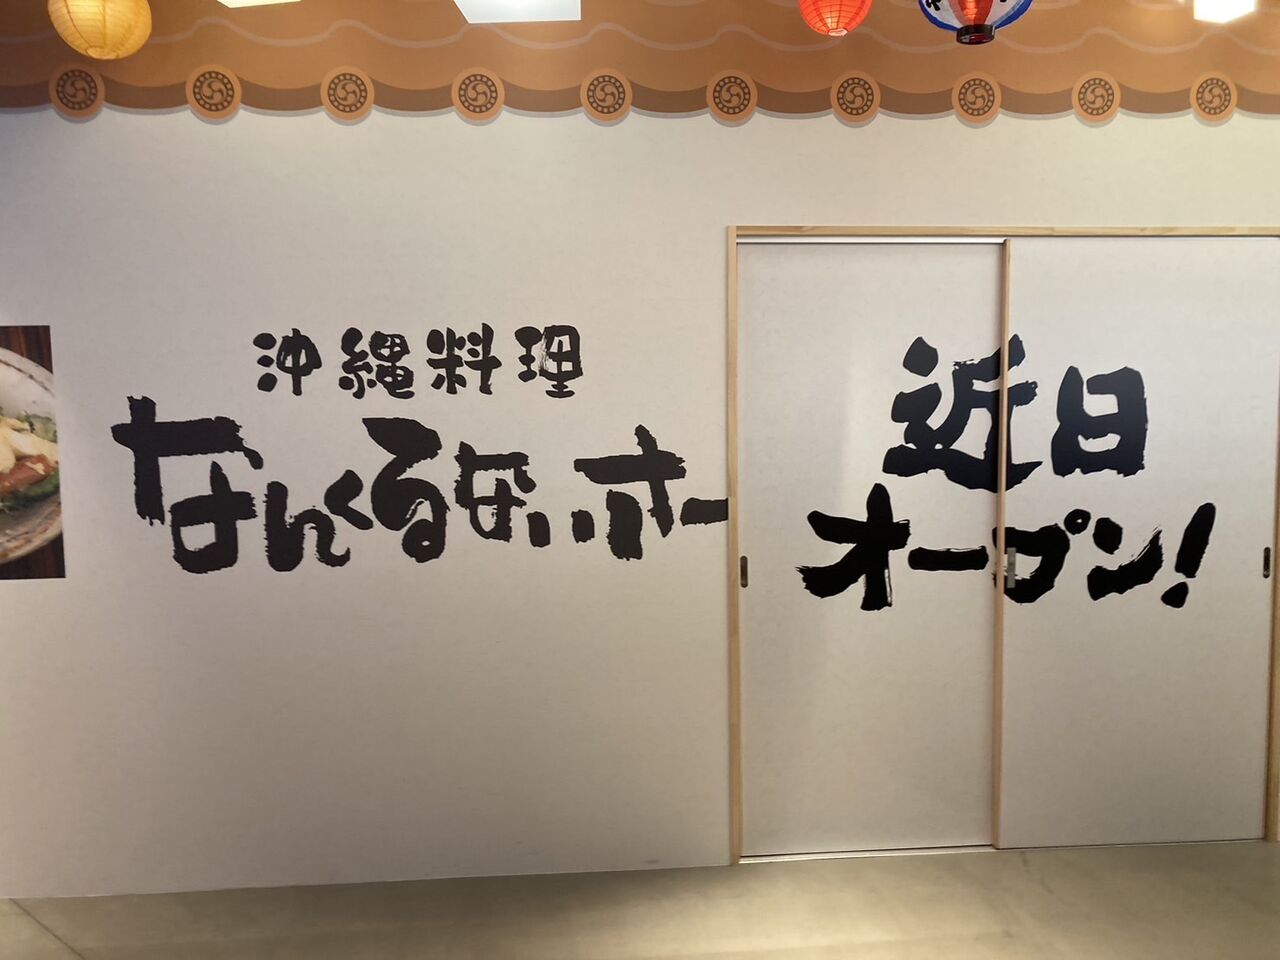 沖縄料理
なんくるないいホー
近日
オープン!